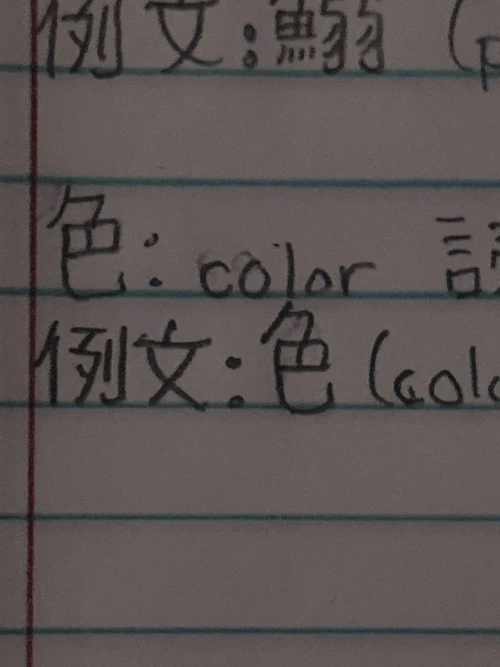 例文:鰯 (
色: color
例文:色 (colo